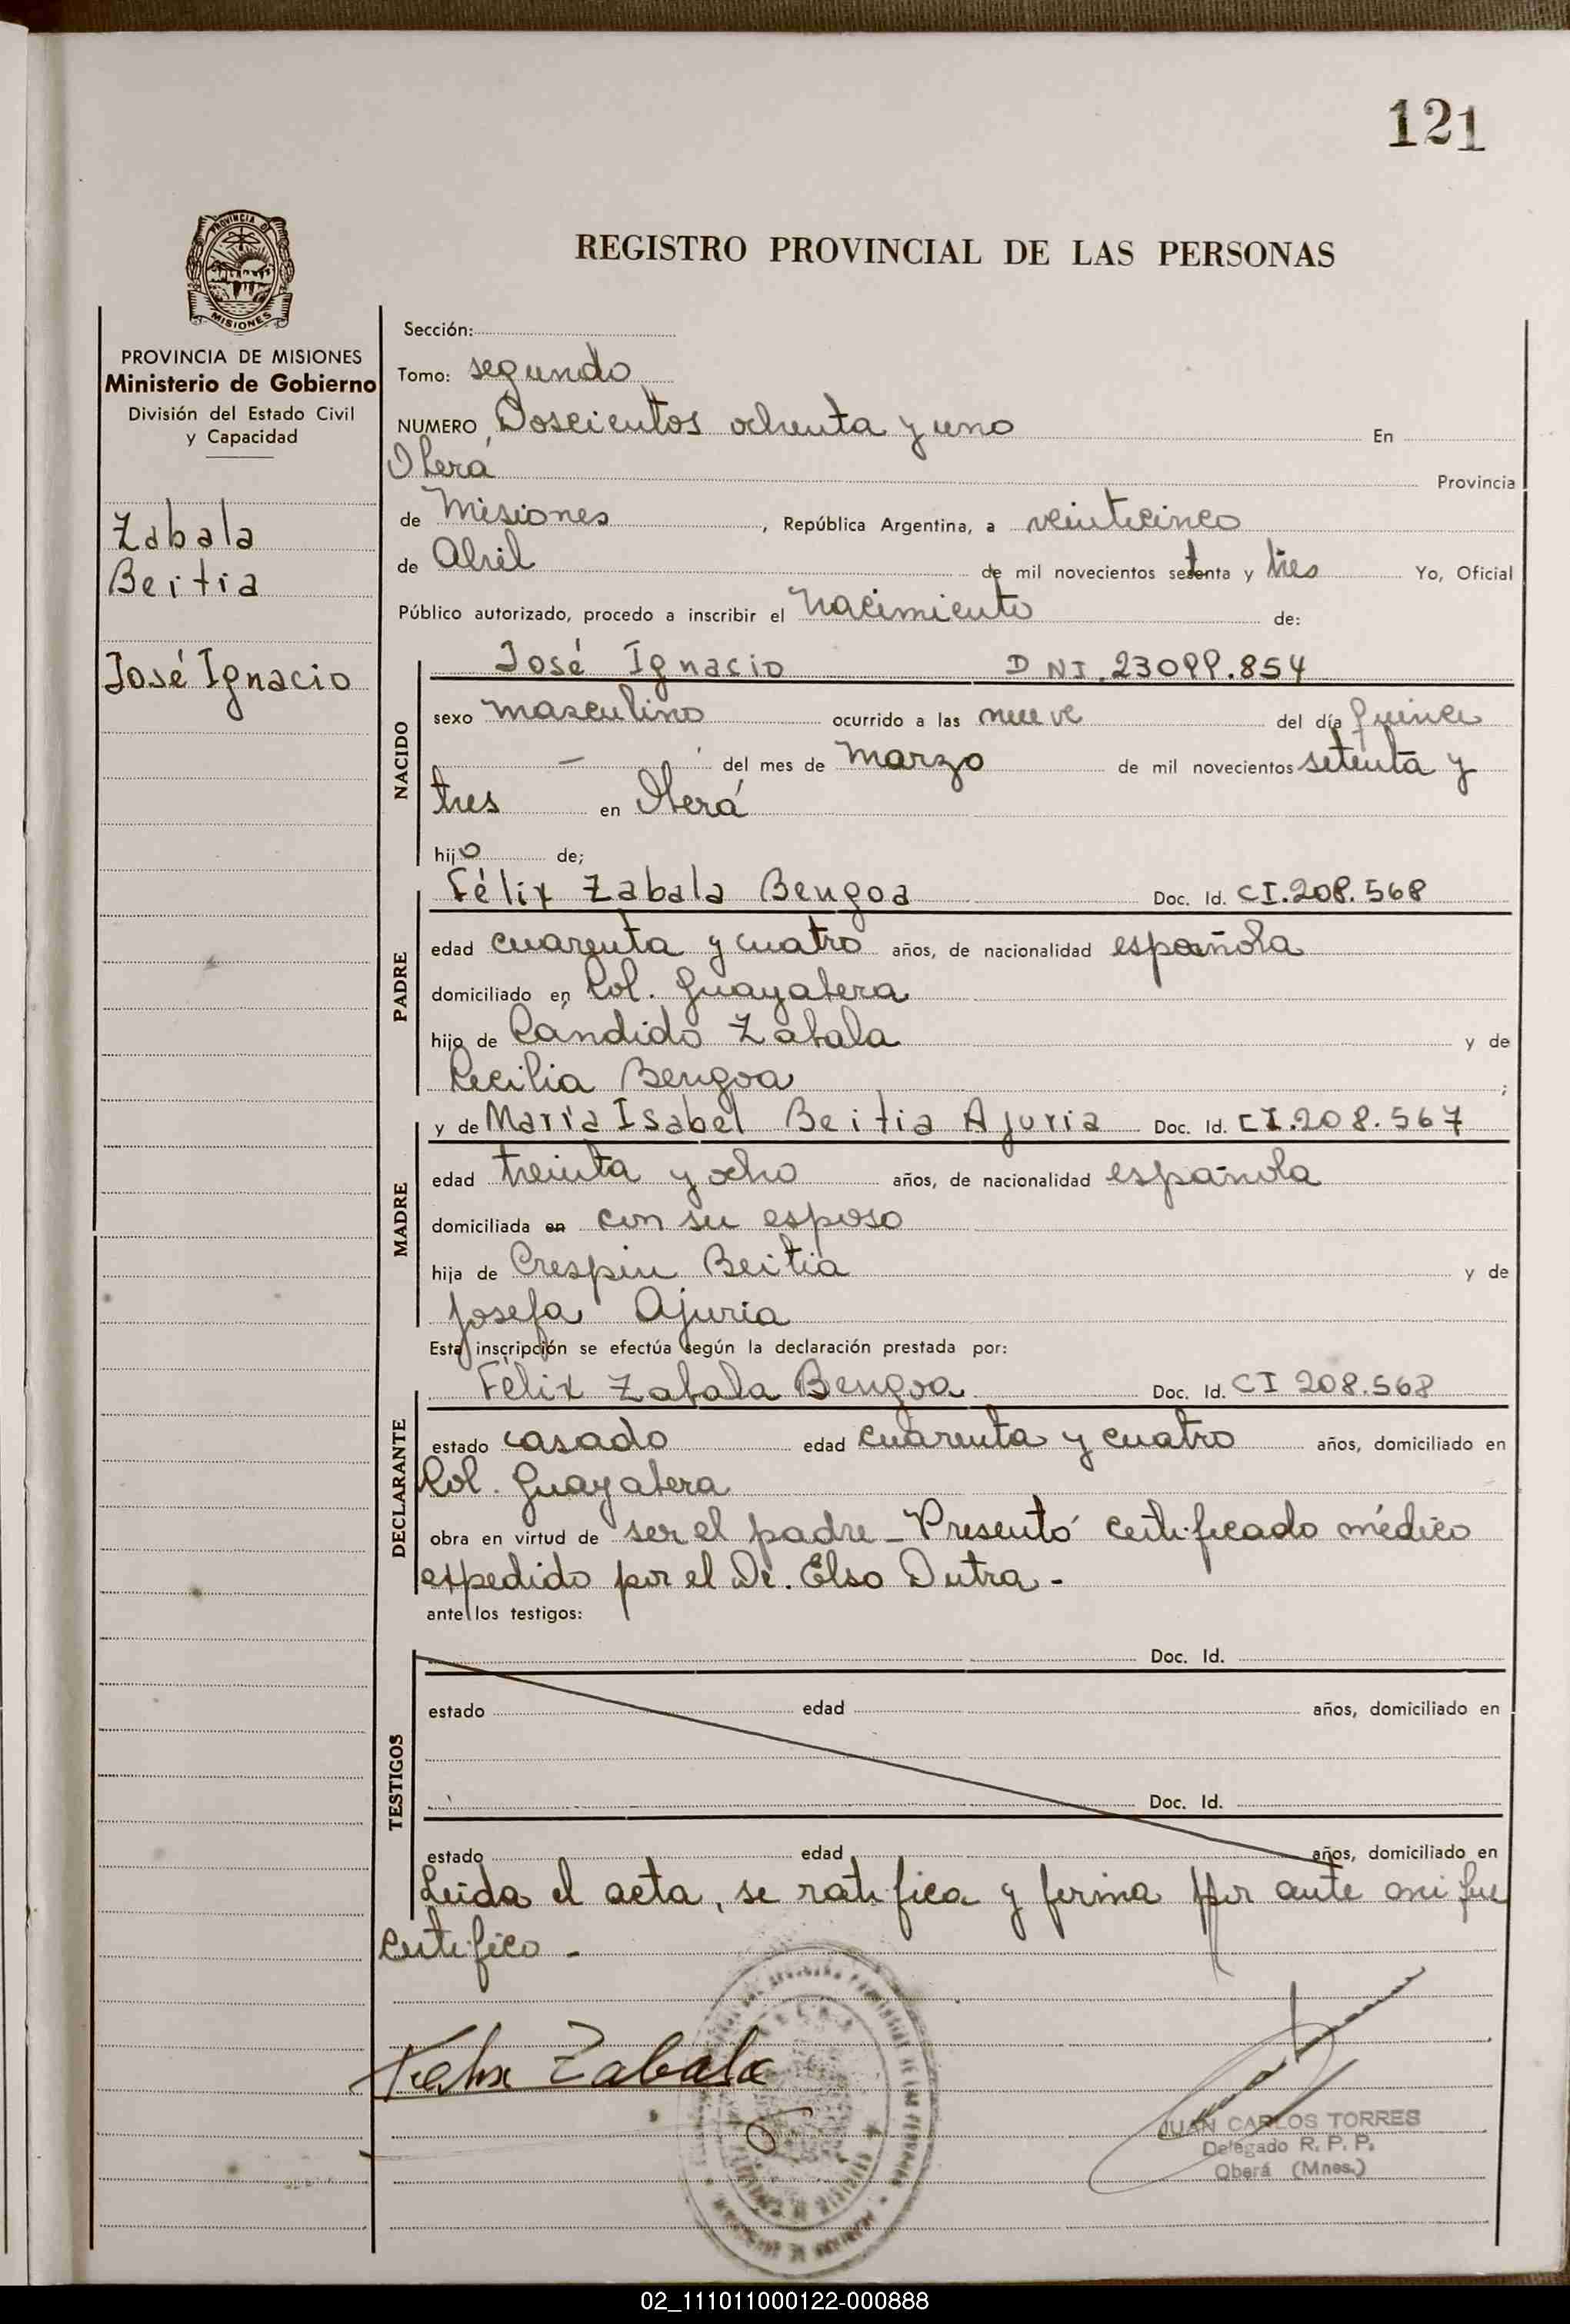 121
PROVINCIA DE
MISIONES
REGISTRO PROVINCIAL DE LAS PERSONAS
PROVINCIA DE MISIONES
Ministerio de Gobierno
División del Estado Civil
y Capacidad
Zabala
Beitia
José Ignacio
Sección:
Tomo: segundo
NUMERO Doscientos ochenta y uno En
Oberá Provincia
de Misiones, República Argentina, a veinticinco
de Abril de mil novecientos setenta y tres Yo, Oficial
Público autorizado, procedo a inscribir el nacimiento de:
NACIDO
José Ignacio DNI.23099.854
sexo masculino ocurrido a las nueve del día quince
— del mes de marzo de mil novecientos setenta y
tres en Oberá
hijo de;
PADRE
Félix Zabala Bengoa Doc. Id. CI.208.568
edad cuarenta y cuatro años, de nacionalidad española
domiciliado en Col. Guayabera
hijo de Cándido Zabala y de
Cecilia Bengoa ;
MADRE
y de María Isabel Beitia Ajuria Doc. Id. CI.208.567
edad treinta y ocho años, de nacionalidad española
domiciliada en con su esposo
hija de Crespin Beitia y de
Josefa Ajuria
Esta inscripción se efectúa según la declaración prestada por:
DECLARANTE
Félix Zabala Bengoa Doc. Id. CI 208.568
estado casado edad cuarenta y cuatro años, domiciliado en
Col. Guayabera
obra en virtud de ser el padre - Presentó certificado médico
expedido por el Dr. Elso Dutra -
ante los testigos:
TESTIGOS
Doc. Id.
estado edad años, domiciliado en
Doc. Id.
estado edad años, domiciliado en
Leida el acta, se ratifica y firma por ante mi que
certifico -
Felix Zabala
JUAN CARLOS TORRES
Delegado R. P. P.
Oberá (Mnes.)
02_111011000122-000888